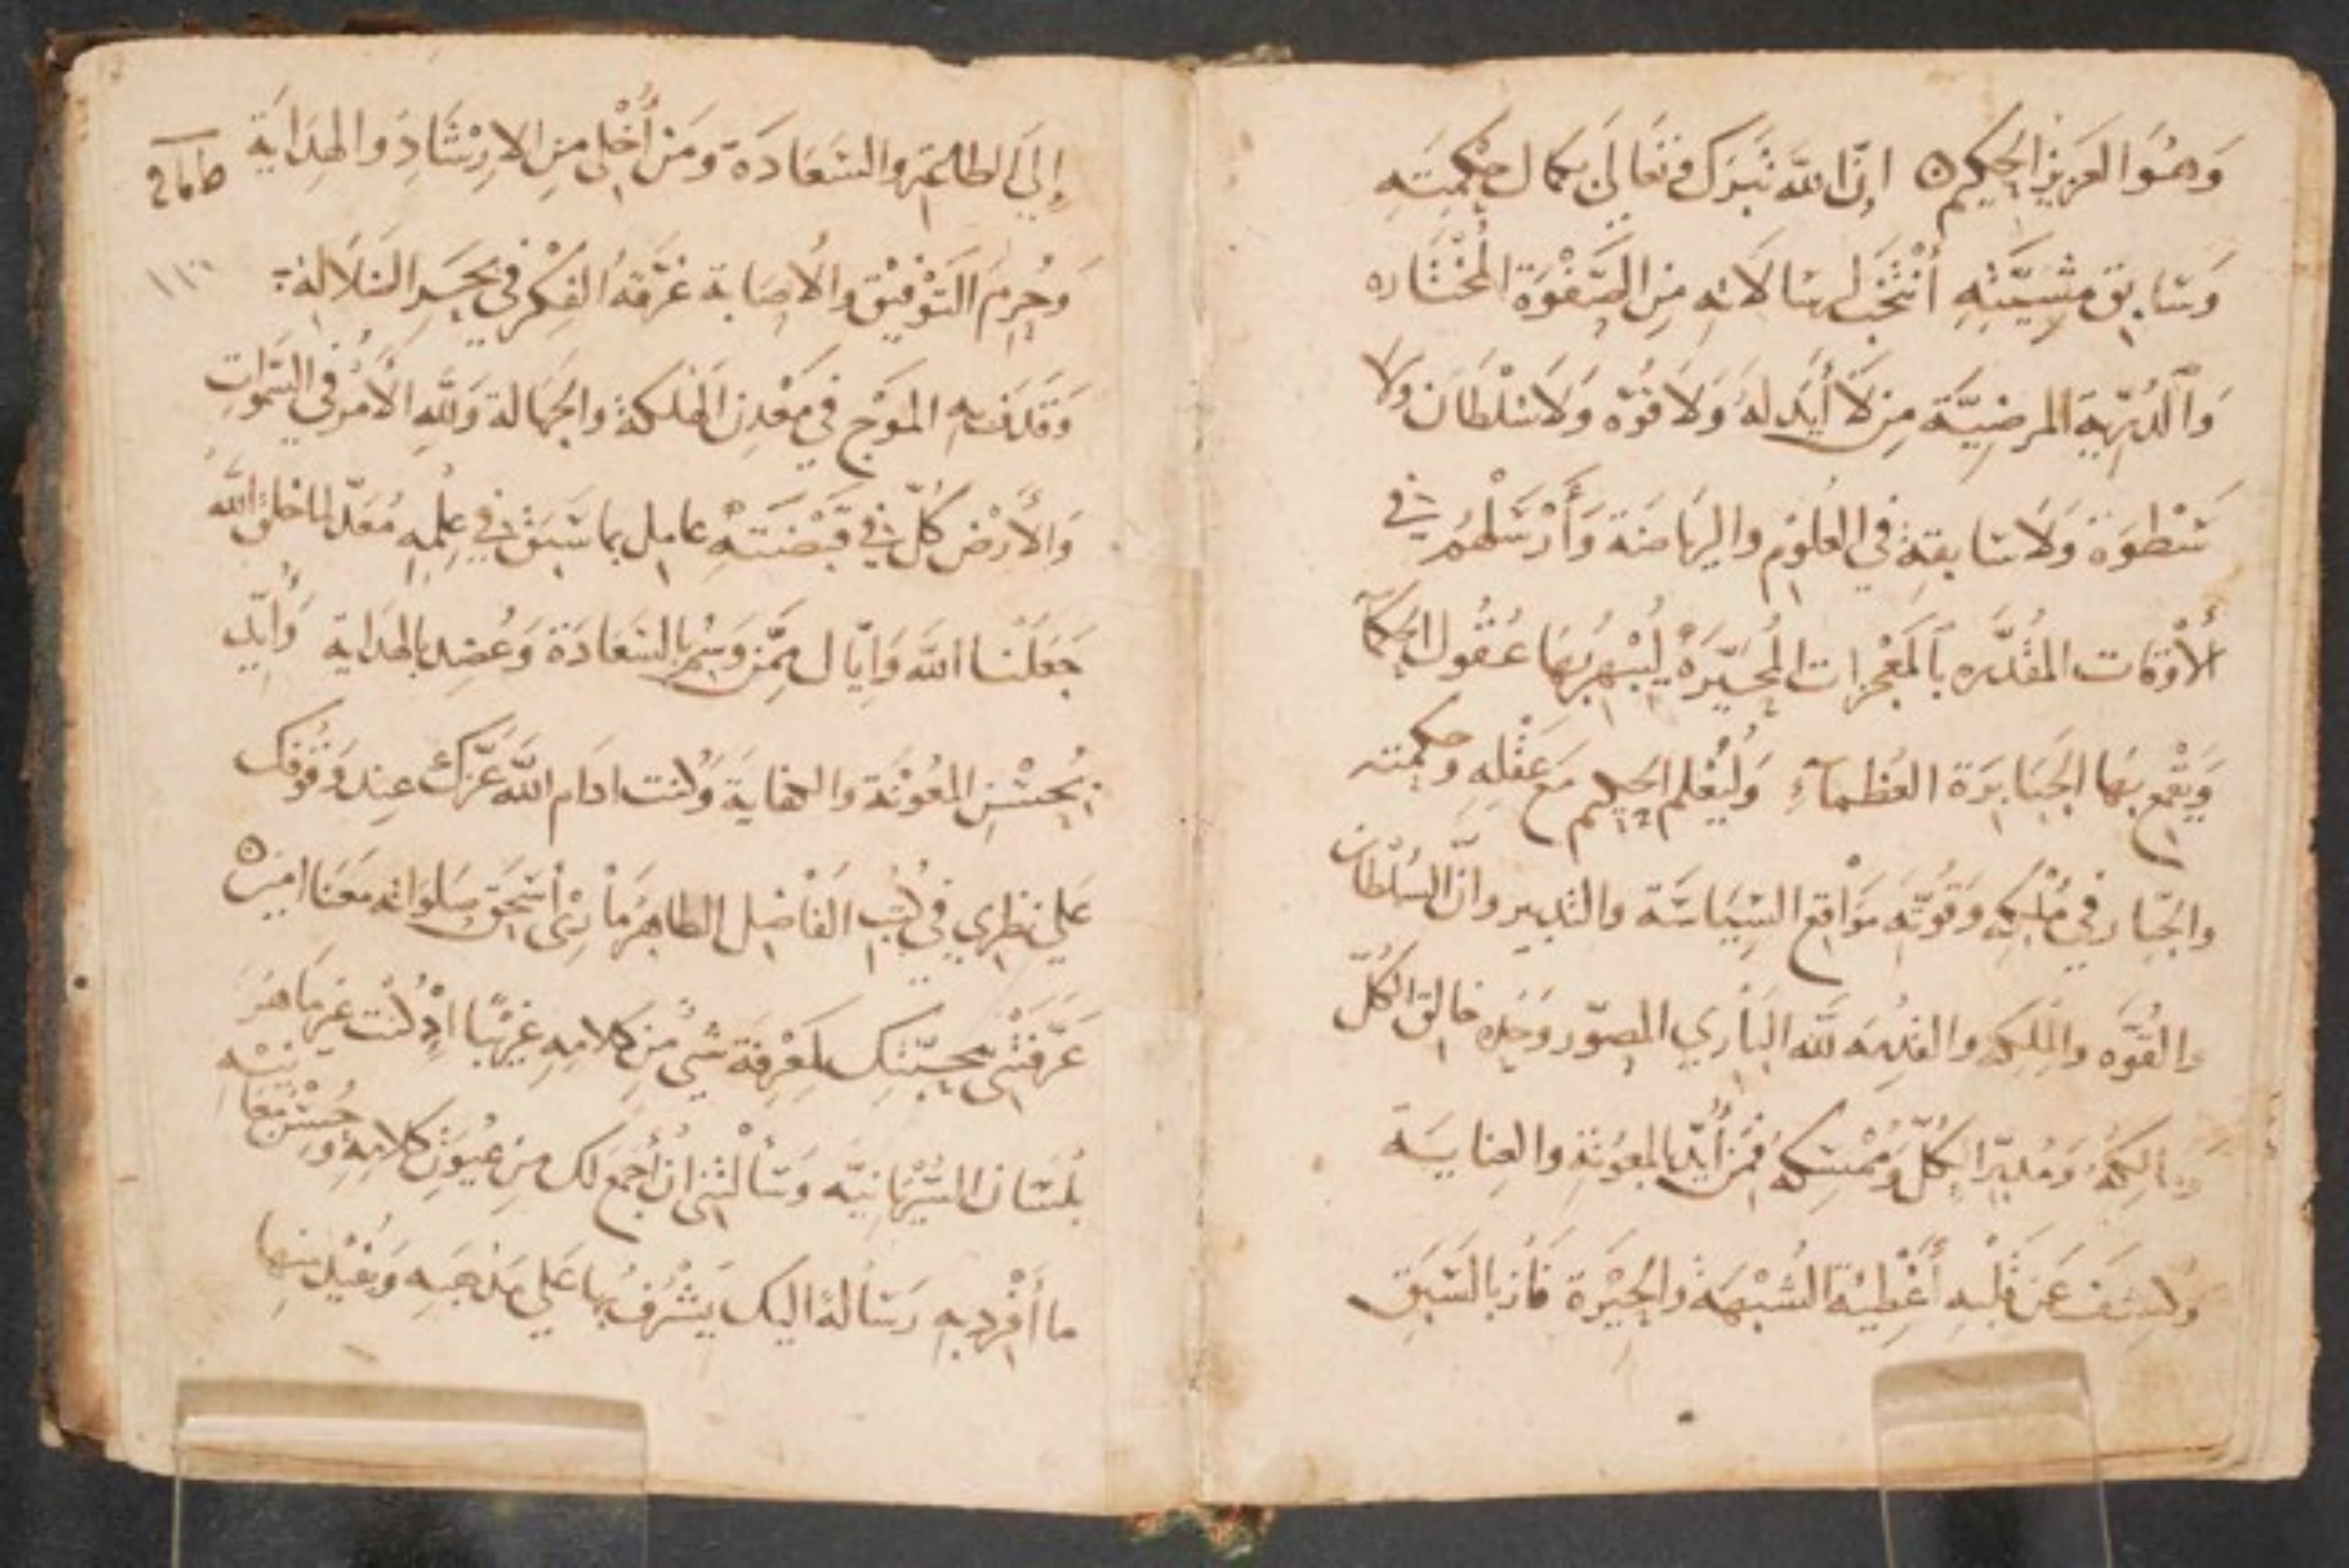 وَهُوَ العَزِيز الحَكِيم ۝ اِنَّ اللَّه تَبَرَك وَتَعَالَى بكَمَال حِكْمَتِهِ
وَسَابق مَشِيَّتِهِ أنْتَخَب لرسَالاتِهِ مِن الصَّفْوَة المُخْتَاره
المرضِيَّة مِن لاَ أَيد لهُ وَلا قُوّه وَلاَ سُلْطَان ولا
سَطْوَة وَلاَ سَابقة فِي العُلوُم والرِيَاضَة وَأَرْسَلَهُم فِي
ألأَوْقات المقُدَّره بِالمُعْجِزات المُحَيّرَةْ ليُبْهِر بهَا عُقُول الحكمآ
وَيَقْمع بهَا الجَبَابرَة العُظمآءِ وَليُعْلم الحَكِيم مَعَ عَقْلِهِ وحكمته
والجَّبار في مُلْكِه وَقُوّتِه مَوَاقع السِّيَاسَة والتدبير وانَّ السُلْطان
والقُوَّه والمُلك والقُدره للَّه البَارِي المصوّر وَحْده خالق الكُلّ
وَمَالِكهُ وَمُدبّر الكُلّ وَمُمْسِكه فَمَن أُيّدَ بالمعُونَةِ والعِنايَة
وَكُشِفَ عَن قَلْبِهِ أَغْطِيَة الشُبْهَة والحِيْرَة فَازَ بالسَبَق
إِلَى والسَعَادَة وَمَن أُخْلِى مِن الارِشَادِ وَالهِدَايَة
وَحُرِمَ التَوْفِيْق والأصَابة غرّقهُ الفِكْر في بَحَر الضَلاَلة
وَقَدفه المَوَج فِي مَعْدِن الهَلكة والجَهَالة وَللَّهِ الأَمْر فِي السَمَواتِ
وَالأَرْض كُلّ فِي قَبْضَتهِ عامِل بما سَبَق في عِلْمِهِ مُعَدّ لما خلقَهُ اللَّه
جَعَلَنا اللَّه وَايَّاك مِمَّن وُسِم بالسَعَادَة وَعُضِد بالهدَاية وَأُيّد
بحُسْنِ المعُونَة والكفاية وَكُنت ادام اللَّه عَزّك عِند وقُوفك
عَلي نظرِي فِي كُتبِ الفَاضِل الطاهِر مَارِى أسْحَق صَلوَاته مَعَنا امِين ۝
عَرَّفَتْني مَحَبّتك لمَعْرِفة شَي مِن كَلامِهِ عَرَبيًّا اذْ كُنْت غَير مَاهرَ
بلسَان السّرْيَانيَّه وَسَألْتَني ان أجْمع لك مِن عيُون كَلامهِ وَحُسْن مَعَانيْه
ما أفْرد بهِ رِسَالة اليك يَشْرُف بهَا عَلي مَذهَبه وَيفيْد منها
١١٠